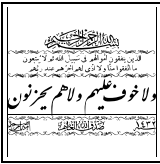 بسم الله الرحمن الرحيم
الذين ينفقون أموالهم في سبيل الله ثم لا يتبعون
ما انفقوا منا ولا أذى لهم أجرهم عند ربهم
ولا خوف عليهم ولا هم يحزنون
صدق الله العظيم